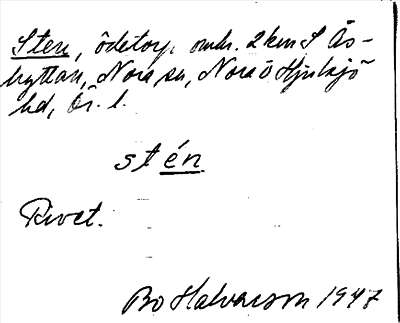 Sten, ödetorp omkr. 2 km S Ås-
hyttan, Nora sn, Nora o Hjulsjö
hd, Ör. l.
stén
Privat.
Bo Halvarson 1947